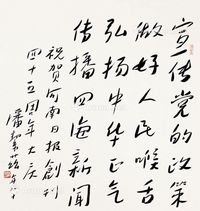 宣传党的政策
做好人民喉舌
弘扬中华正气
传播四海新闻
祝贺河南日报创刊
四十五周年大庆